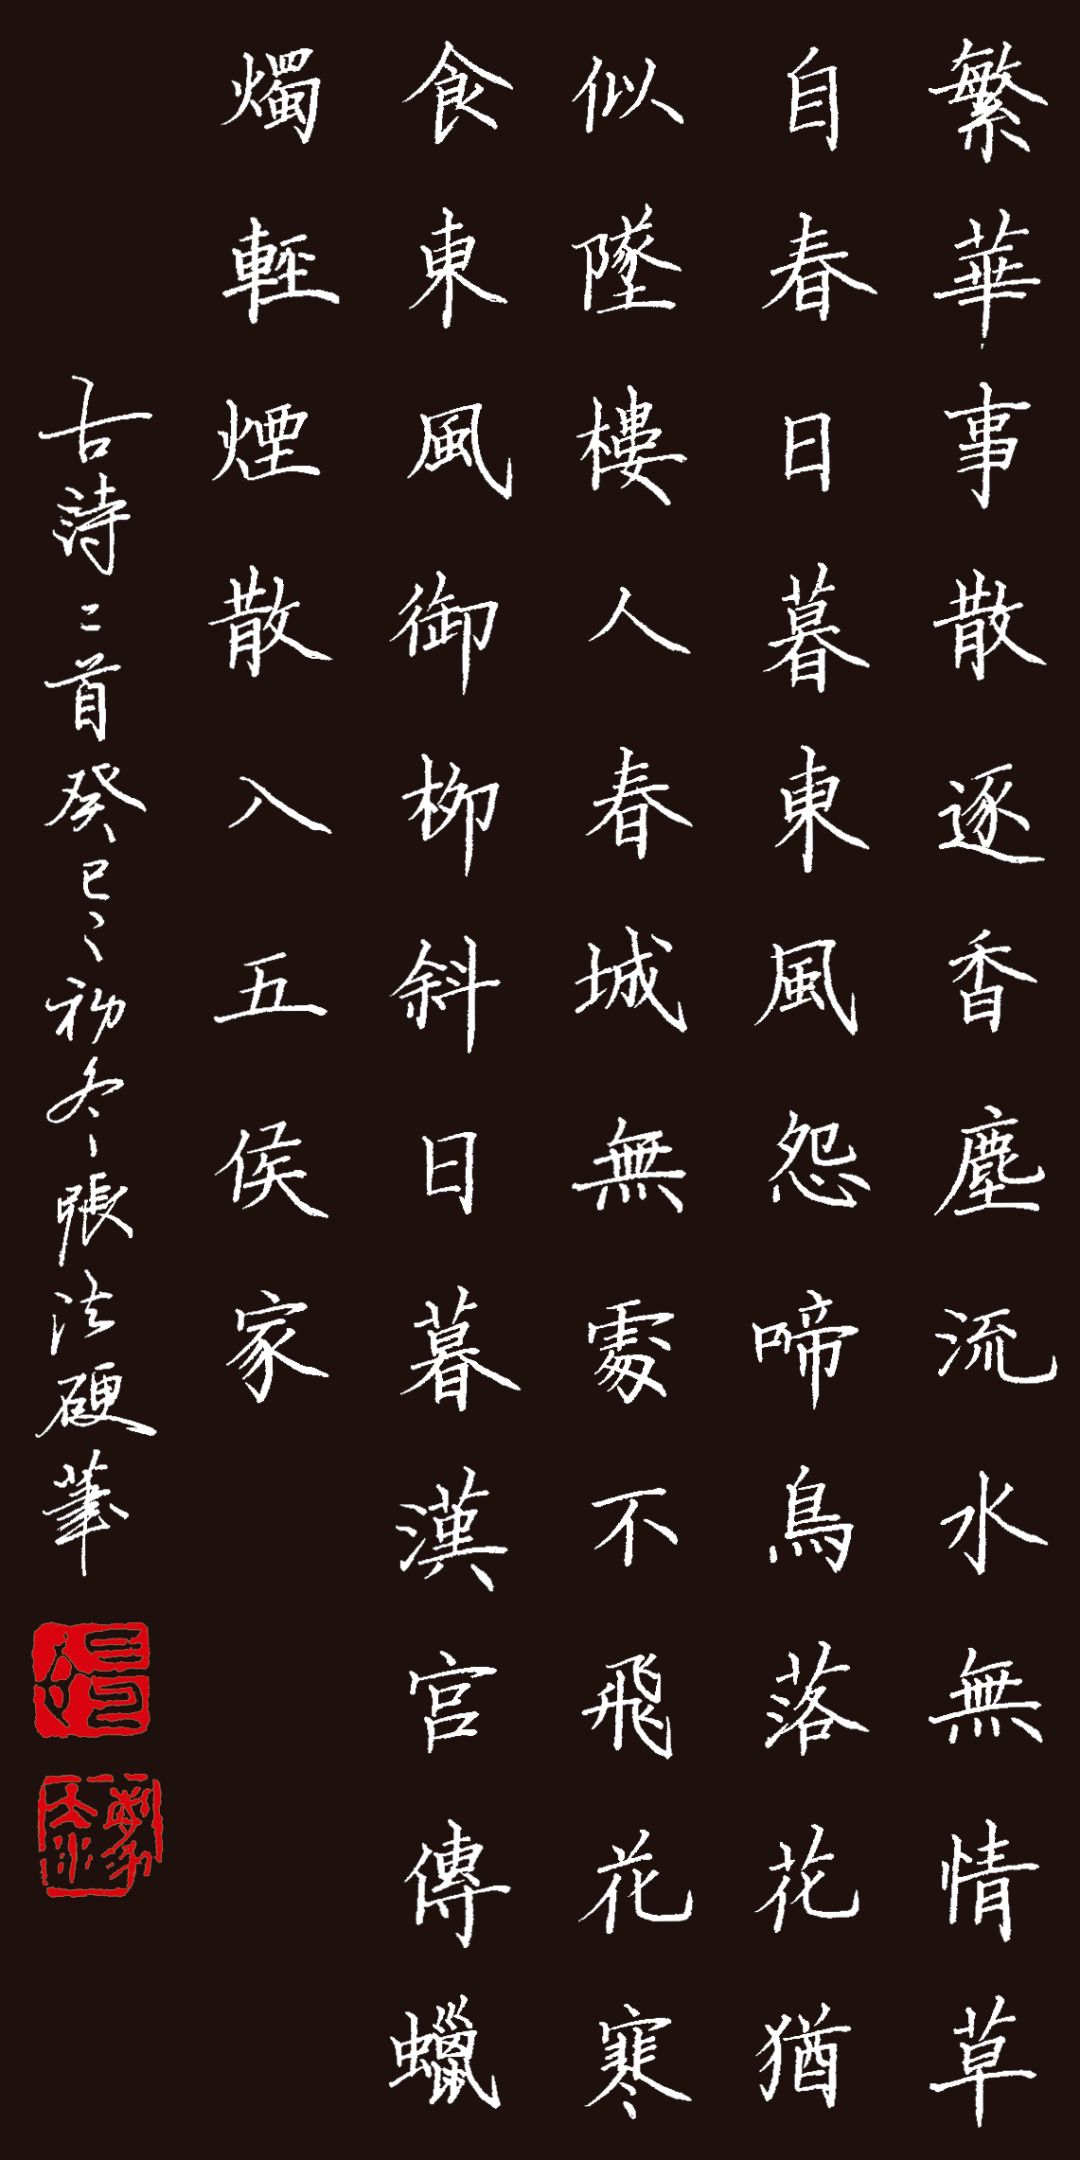 繁華事散逐香塵流水無情草
自春日暮東風怨啼鳥落花猶
似墜樓人春城無處不飛花寒
食東風御柳斜日暮漢宮傳蠟
燭輕煙散入五侯家
古詩二首癸巳之初冬張法硬筆